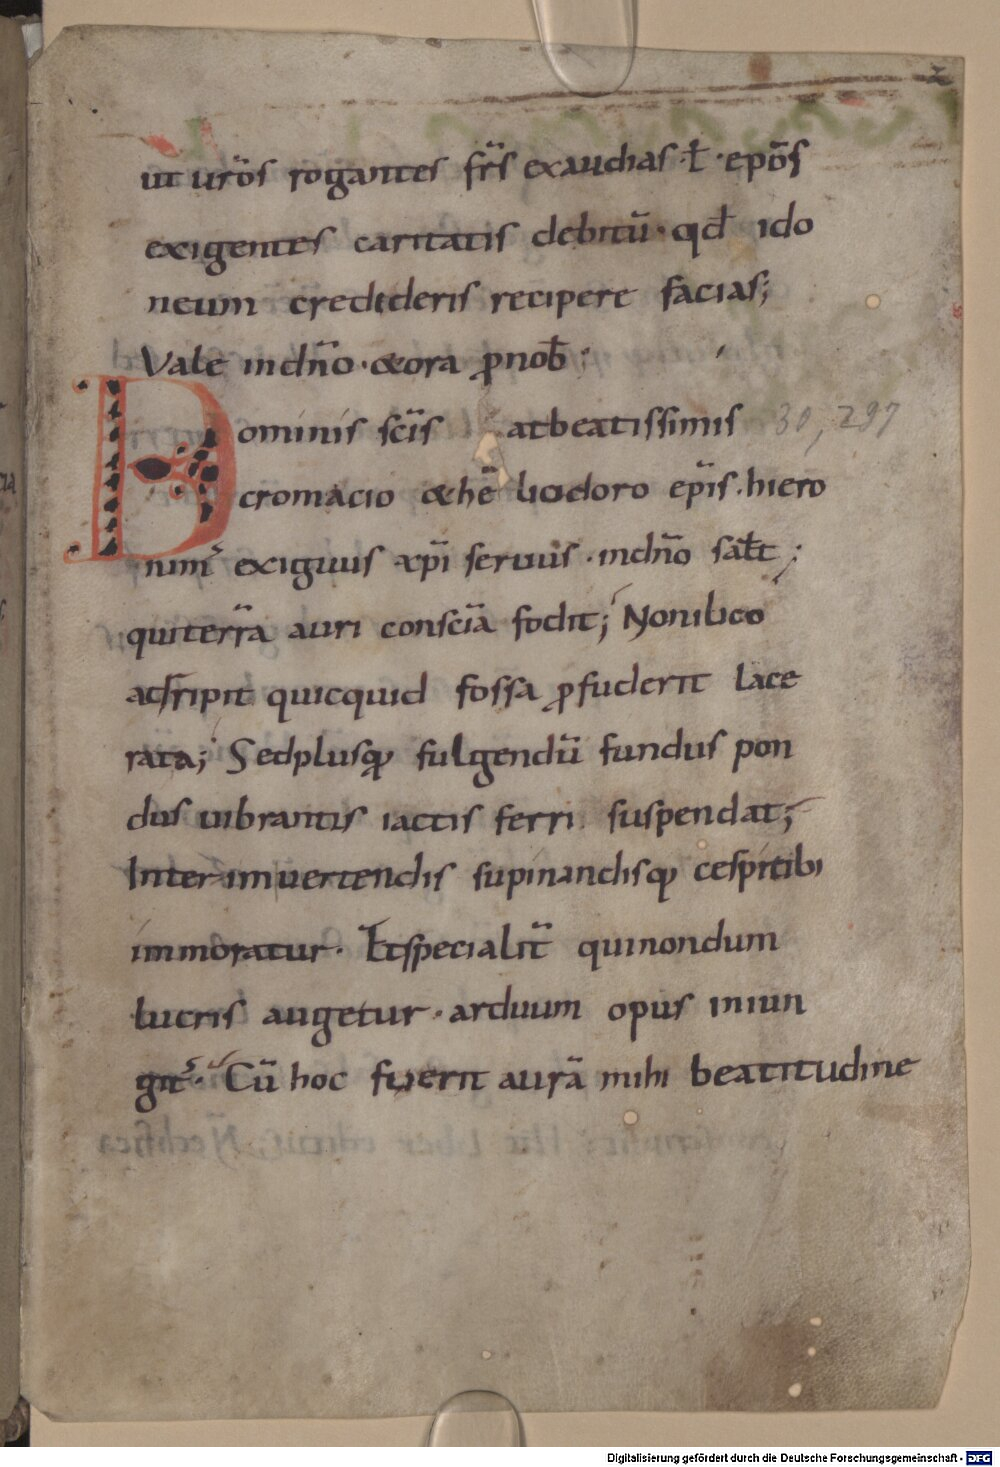 2
ut ur̄os rogantes fr̄s exaudias · ł · ep̄os
exigentes caritatis debitū · qd̄ ido
neum credideris recipere facias;
Vale indn̄o · &ora ꝓnob̄;
Dominis sc̄is atbeatissimis
30, 297
cromacio &hē liodoro ep̄is · hiero
nim᷒ exiguus xp̄i seruus · indn̄o sał̄t;
quiterr̄a auri consciā fodit; Nonilico
adsripit quicquid fossa ꝓfuderit lace
rata; Sedplusqꝫ fulgendū fundus pon
dus uibrantis iactis ferri suspendat;
Inter imuertendis supinandisqꝫ cespitibi
immoratur · Etspecialit̄ quinondum
lucris augetur · arduum opus iniun
git᷒ · Cū hoc fuerit aurā mihi beatitudine
Digitalisierung gefördert durch die Deutsche Forschungsgemeinschaft - DFG